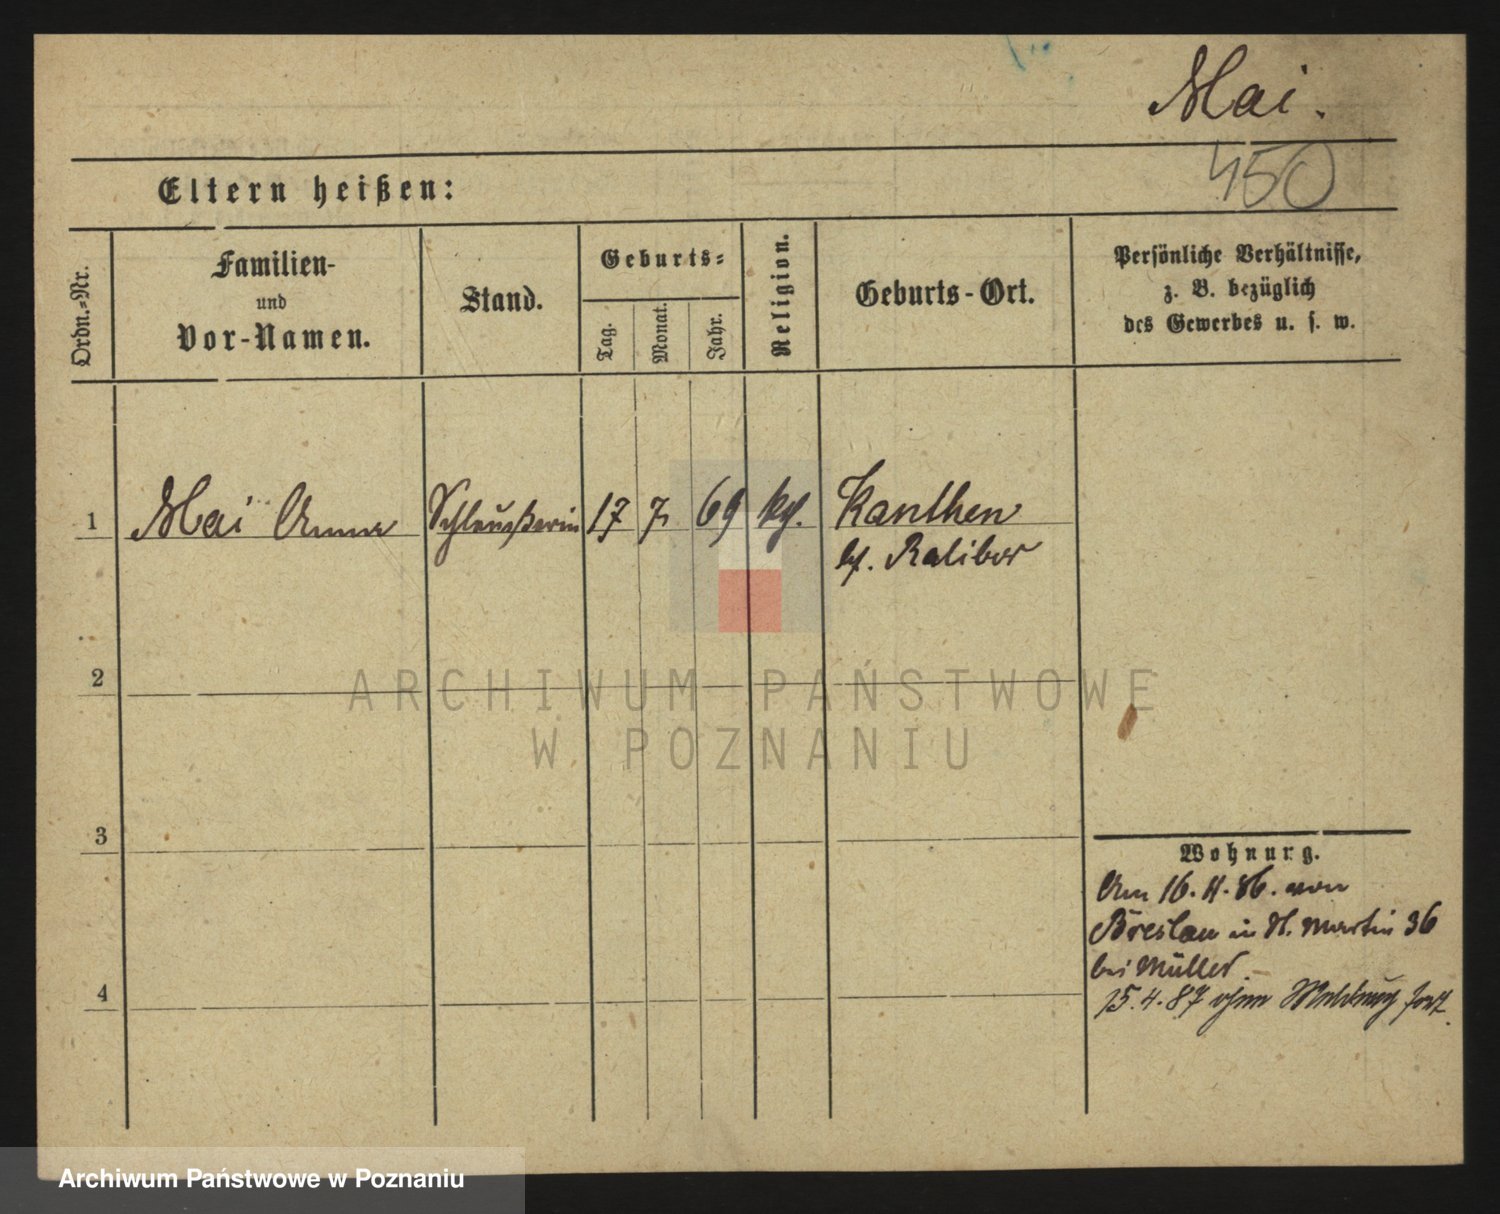 Mai.
450
Eltern heißen:
Ordn.-Nr.
Familien-
und
Vor-Namen.
Stand.
Geburts-
Tag.
Monat.
Jahr.
Religion.
Geburts-Ort.
Persönliche Verhältnisse,
z. B. bezüglich
des Gewerbes u. s. w.
1 Mai Anna Schleußerin 17 7 69 kg. Kanthen
bf. Ratibor
2
ARCHIWUM PAŃSTWOWE
W POZNANIU
3
Wohnung.
Am 16. 11. 86. von
Breslau in St. Martin 36
bei Müller.
4
15. 4. 87 ohne Meldung fort.
Archiwum Państwowe w Poznaniu